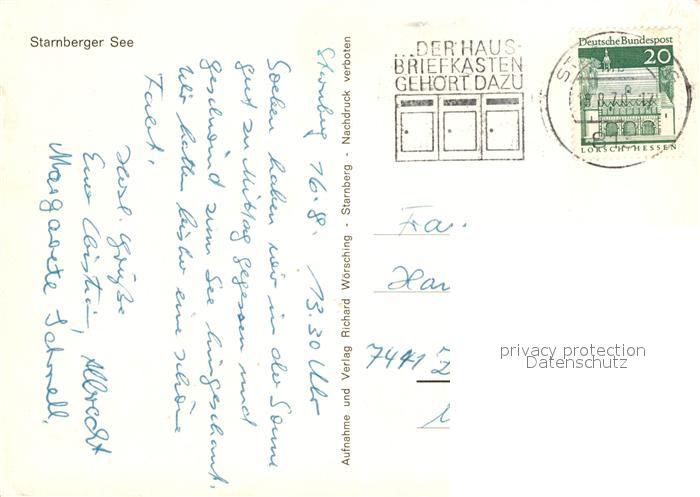 Starnberger See
Starnberg 16.8. 13.30 Uhr
Soeben haben wir in der Sonne
gut zu Mittag gegessen und
geschwind zum See hingeschaut.
Wir hatten bisher eine schöne
Fahrt.
Herzl. Grüße
Eure Christin, Albrecht
Margarete Schnell.
Aufnahme und Verlag Richard Wörsching - Starnberg - Nachdruck verboten
...DER HAUS-
BRIEFKASTEN
GEHÖRT DAZU
Deutsche Bundespost
20
LORSCH/HESSEN
Fa
Han
7441 Z
privacy protection
Datenschutz